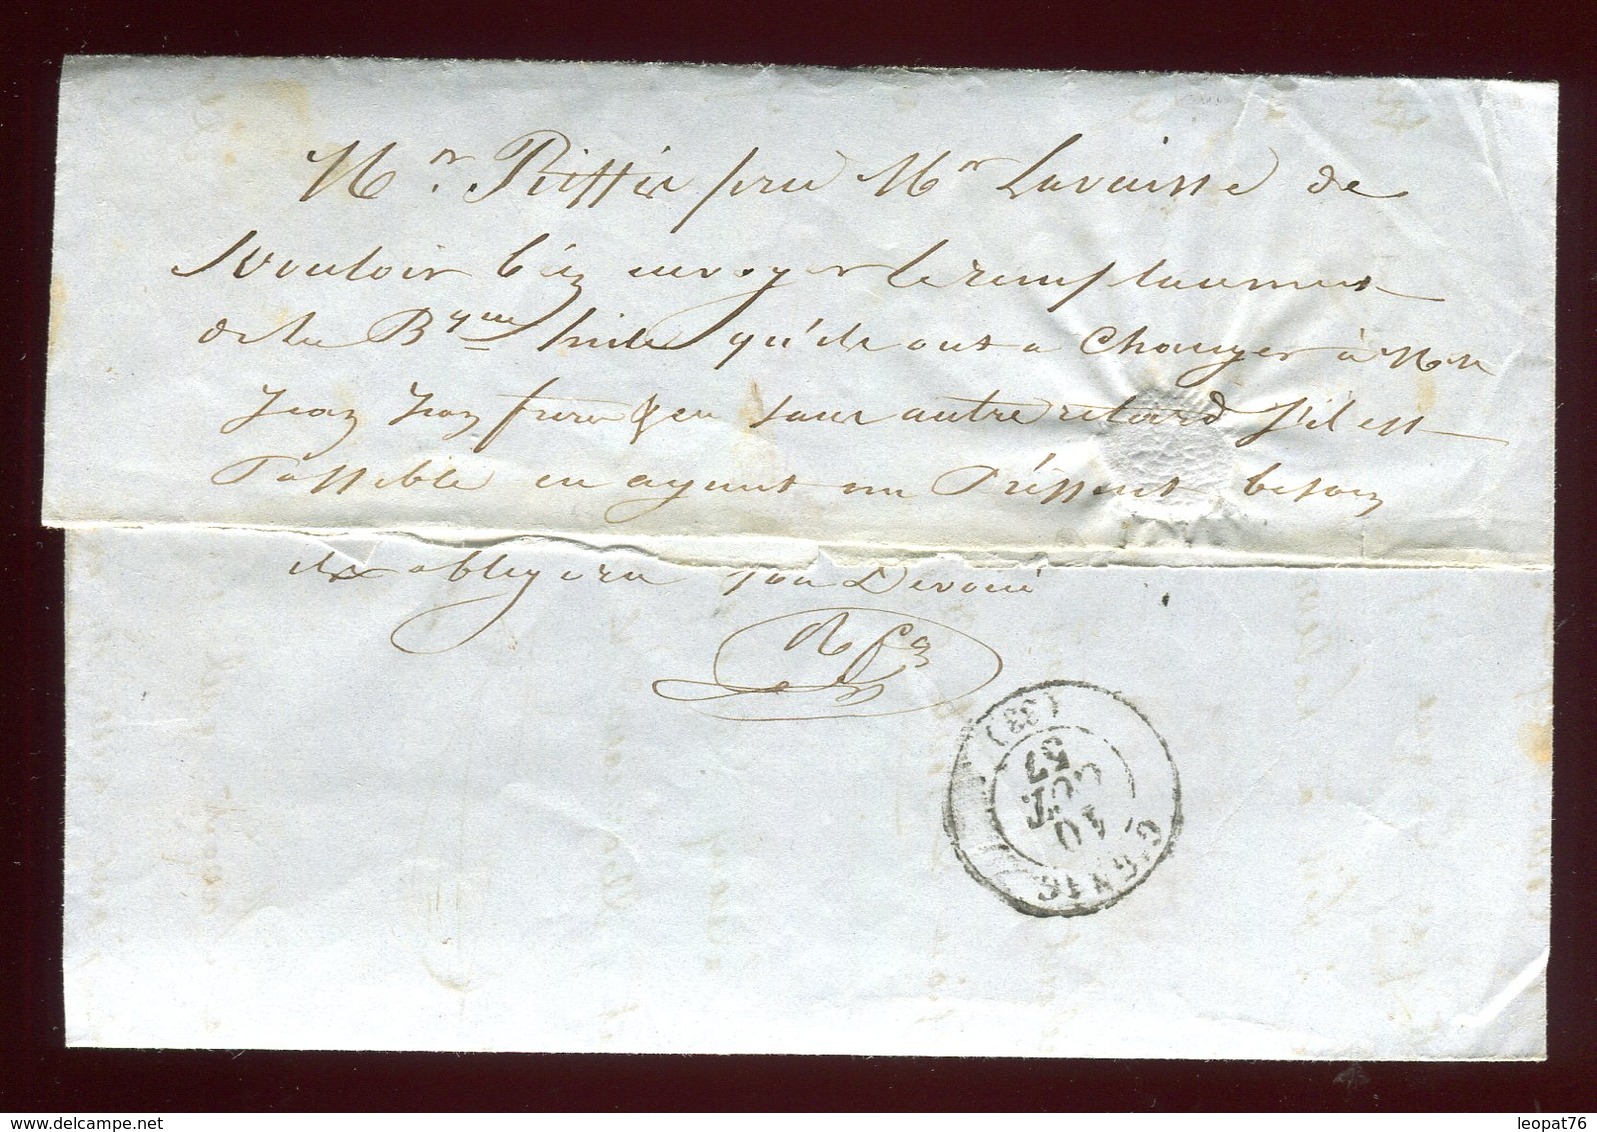 Mr. Riffie prie Mr Lavaisse de
Vouloir bien envoyer le remplacement
de la Bque huile qu'ils ont a Changer à MM
Jean frères sans autre retard s'il est
Possible en ayant un Préssent besoin
obligera son Devoué
GENIS
10
OCT
57
(33)
leopat76